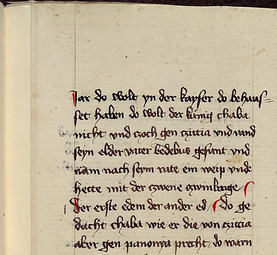 Jar do wolt yn der kayser do behaus-
set haben do wolt der künig chaba
nicht vnd czoch gen zitia vnd vand
seyn elder vater bedebus gesant vnd
nam nach seym rate ein weip vnd
hette mit der zwene zwinlinge
der erste edem der ander ed do ge-
dacht chaba wie er die von zitia
aber gen panonya precht do warn